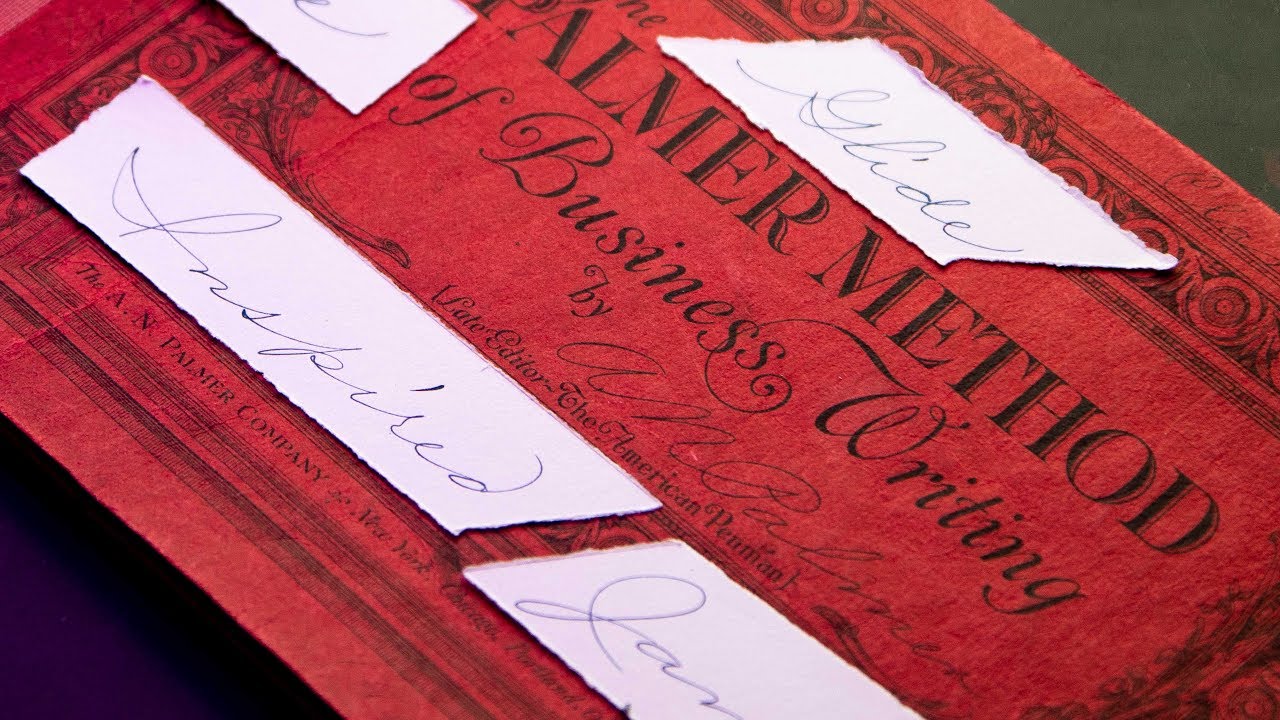 The
PALMER METHOD
of Business Writing
by
A N Palmer
(Late Editor-The American Penman)
The A. N. PALMER COMPANY
New York
Glide
Inspired